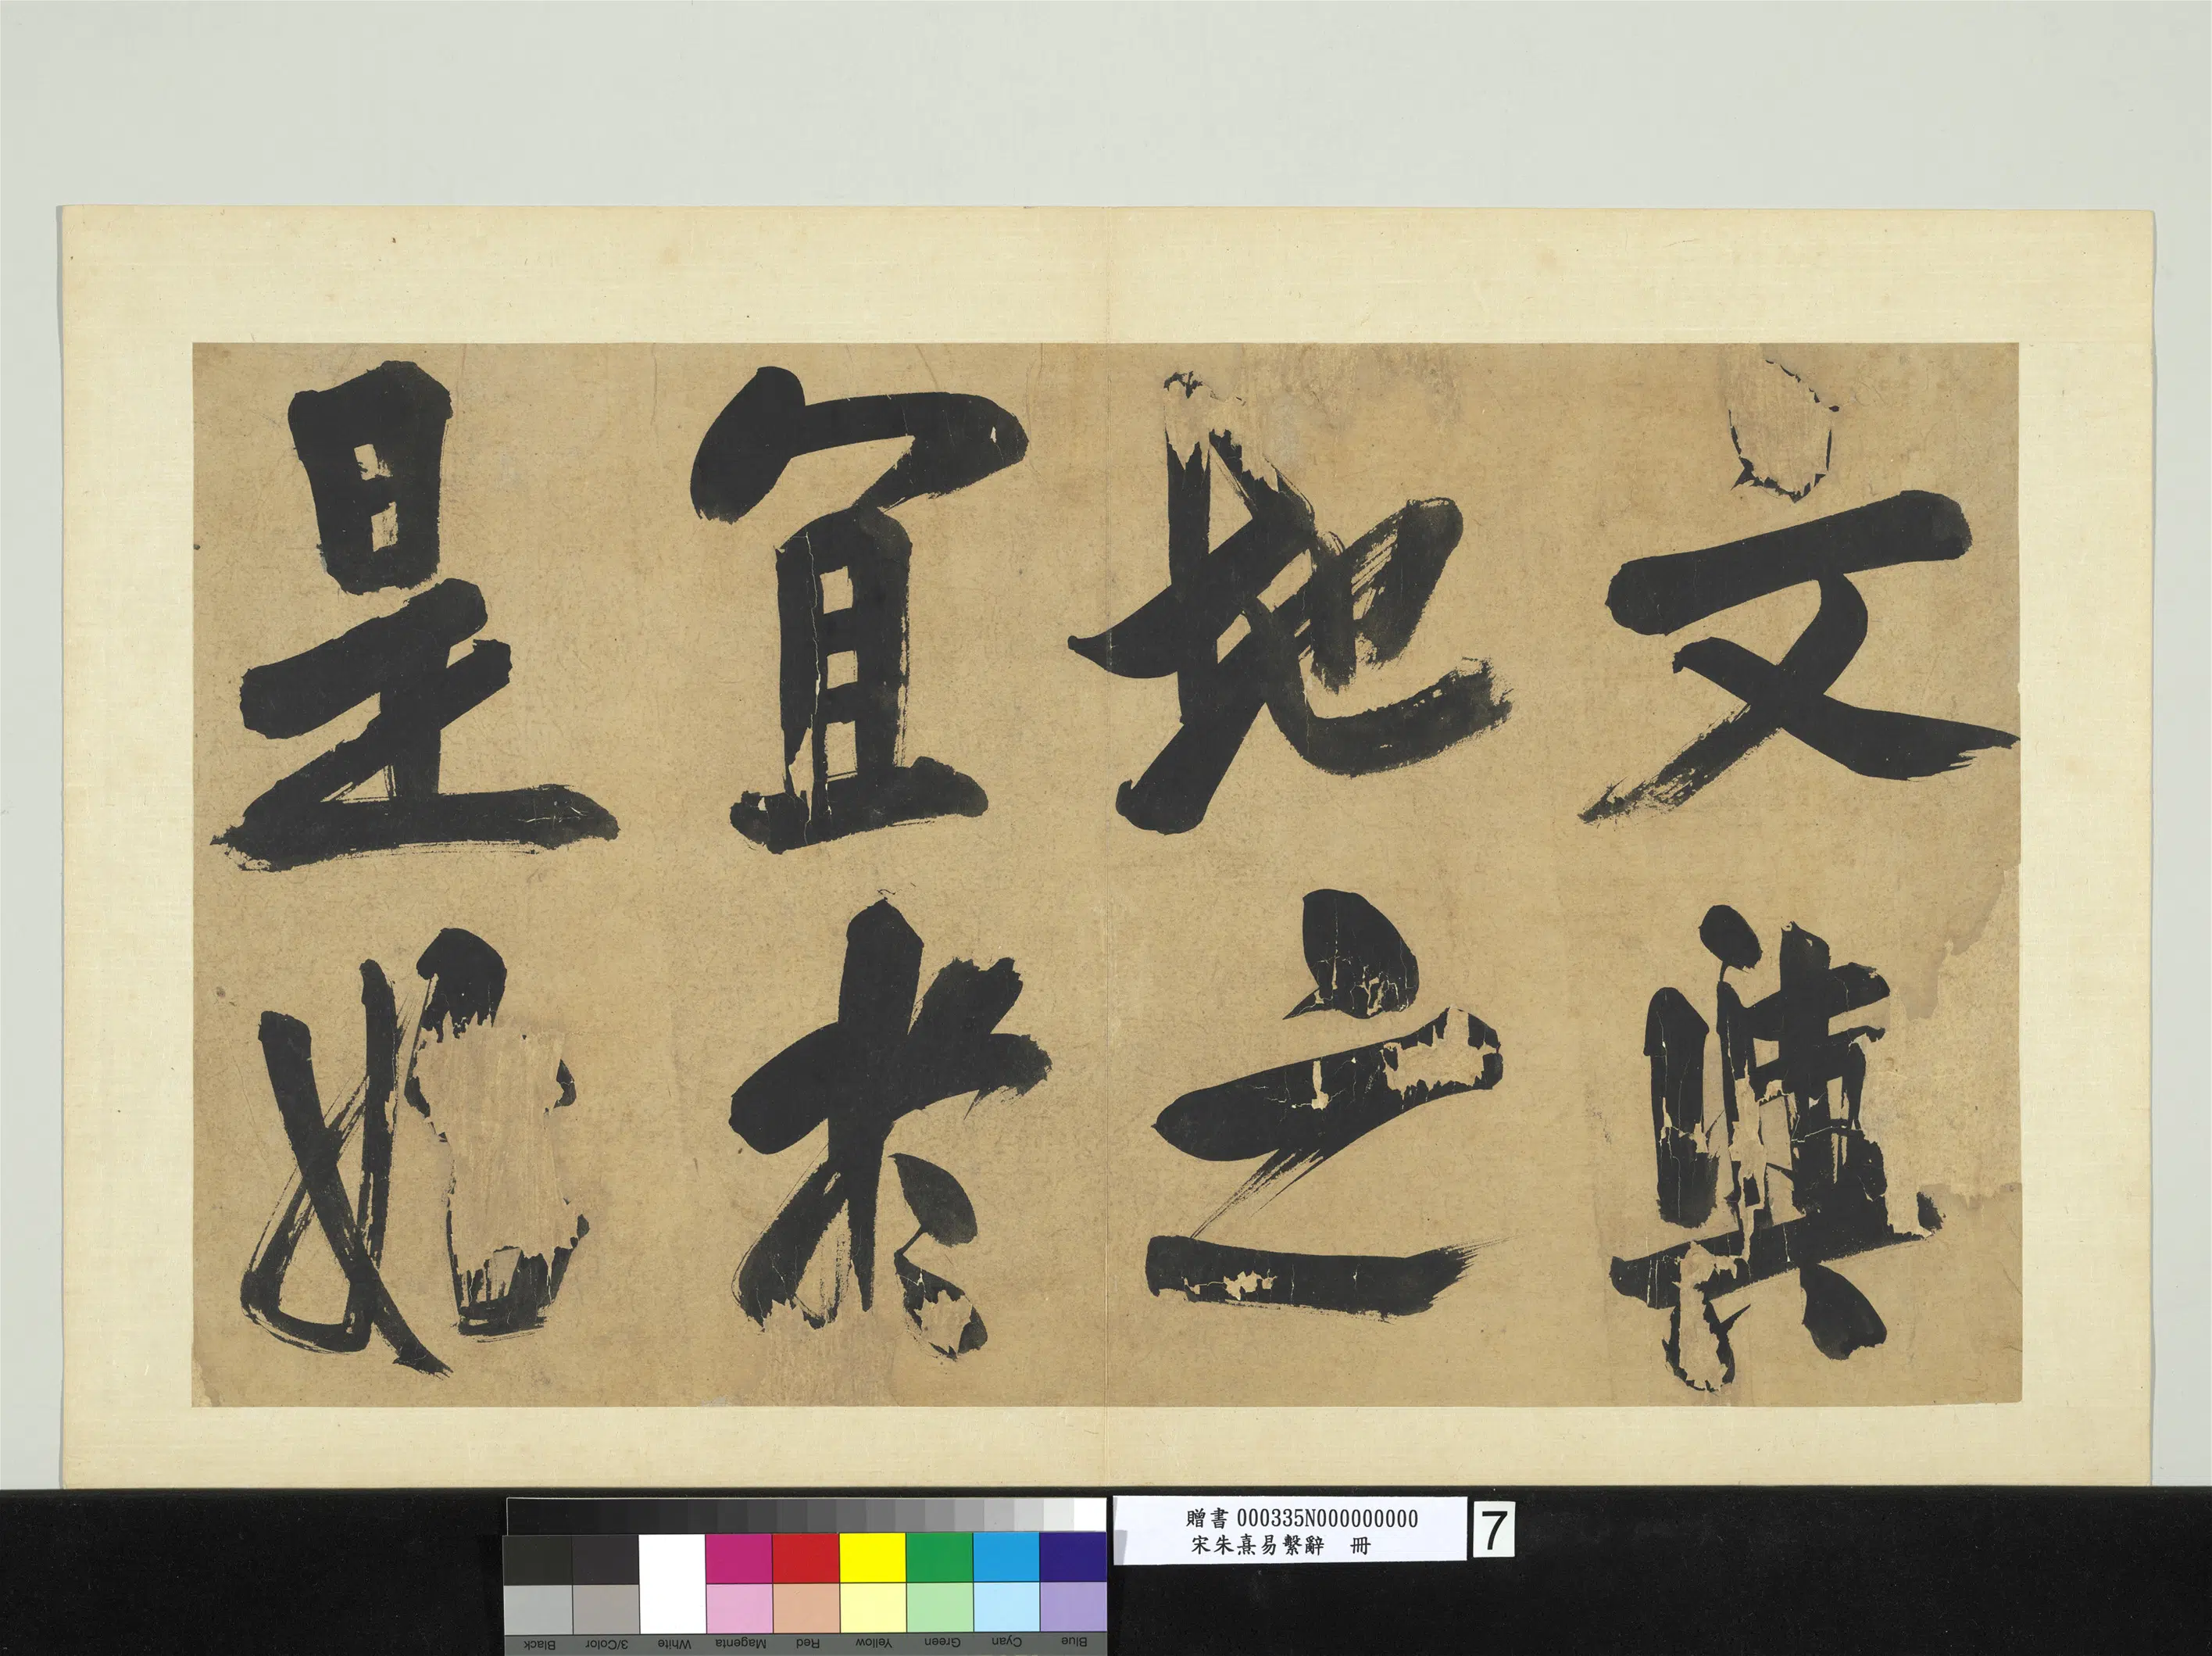 文與
地之
宜於
是始
贈書 000335N000000000
宋朱熹易繫辭 冊
7
Black
3/Color
White
Magenta
Red
Yellow
Green
Cyan
Blue